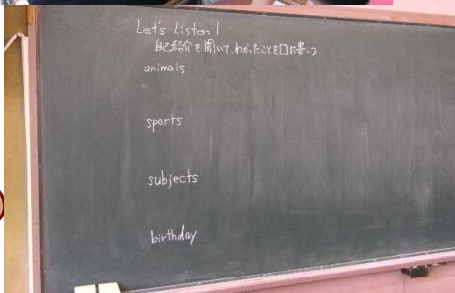 Let's Listen 1
自己紹介を聞いて、わかったことを□に書こう
animals
sports
subjects
birthday